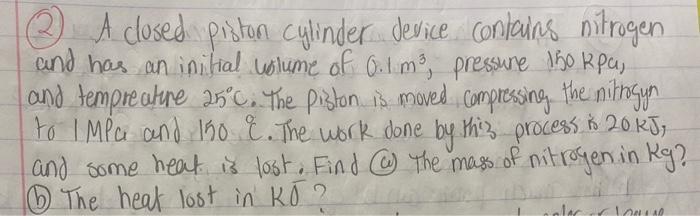 ② A closed piston cylinder device contains nitrogen
and has an initial volume of 0.1 m³, pressure 150 kpa,
and tempreature 25°C. The piston is moved compressing the nitrogyn
to 1 MPa and 150 °C. The work done by this process is 20 kJ,
and some heat is lost. Find ⓐ The mass of nitrogen in kg?
ⓑ The heat lost in KJ ?